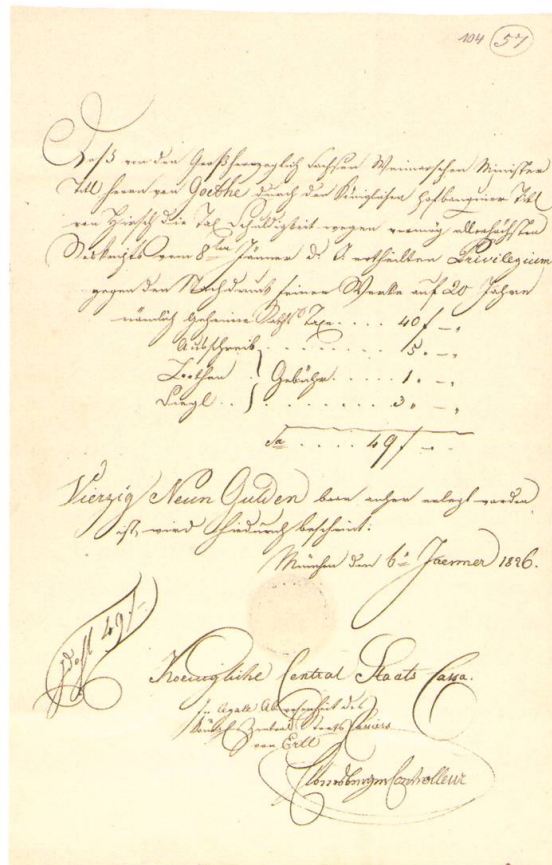 104 57
Daß von dem Großherzoglich Sachsen Weimarschen Minister
Titl Herrn von Goethe durch den Königlichen Hofbanquier Titl
von Hirsch die Tax Schuldigkeit wegen vermög allerhöchsten
Rescripts vom 8ten Jänner d. J. ertheilten Privilegium
gegen den Nachdruck seiner Werke auf 20 Jahre
nämlich Geheime Raths Taxe .... 40 f – „
Ausschreib ........ 5 „ – „
Bothen } Gebühr .... 1 „ – „
Siegl .. } ........ 3 „ – „
Sa .... 49 f – „
Vierzig Neun Gulden baar anher erlegt worden
ist, wird hiedurch bescheint.
München den 6n Jaenner 1826.
49 f –
Koenigliche Central Staats Cassa.
In Abwesenheit des
Königl. Zentral Staats Cassiers
von Ertl
Controlleur